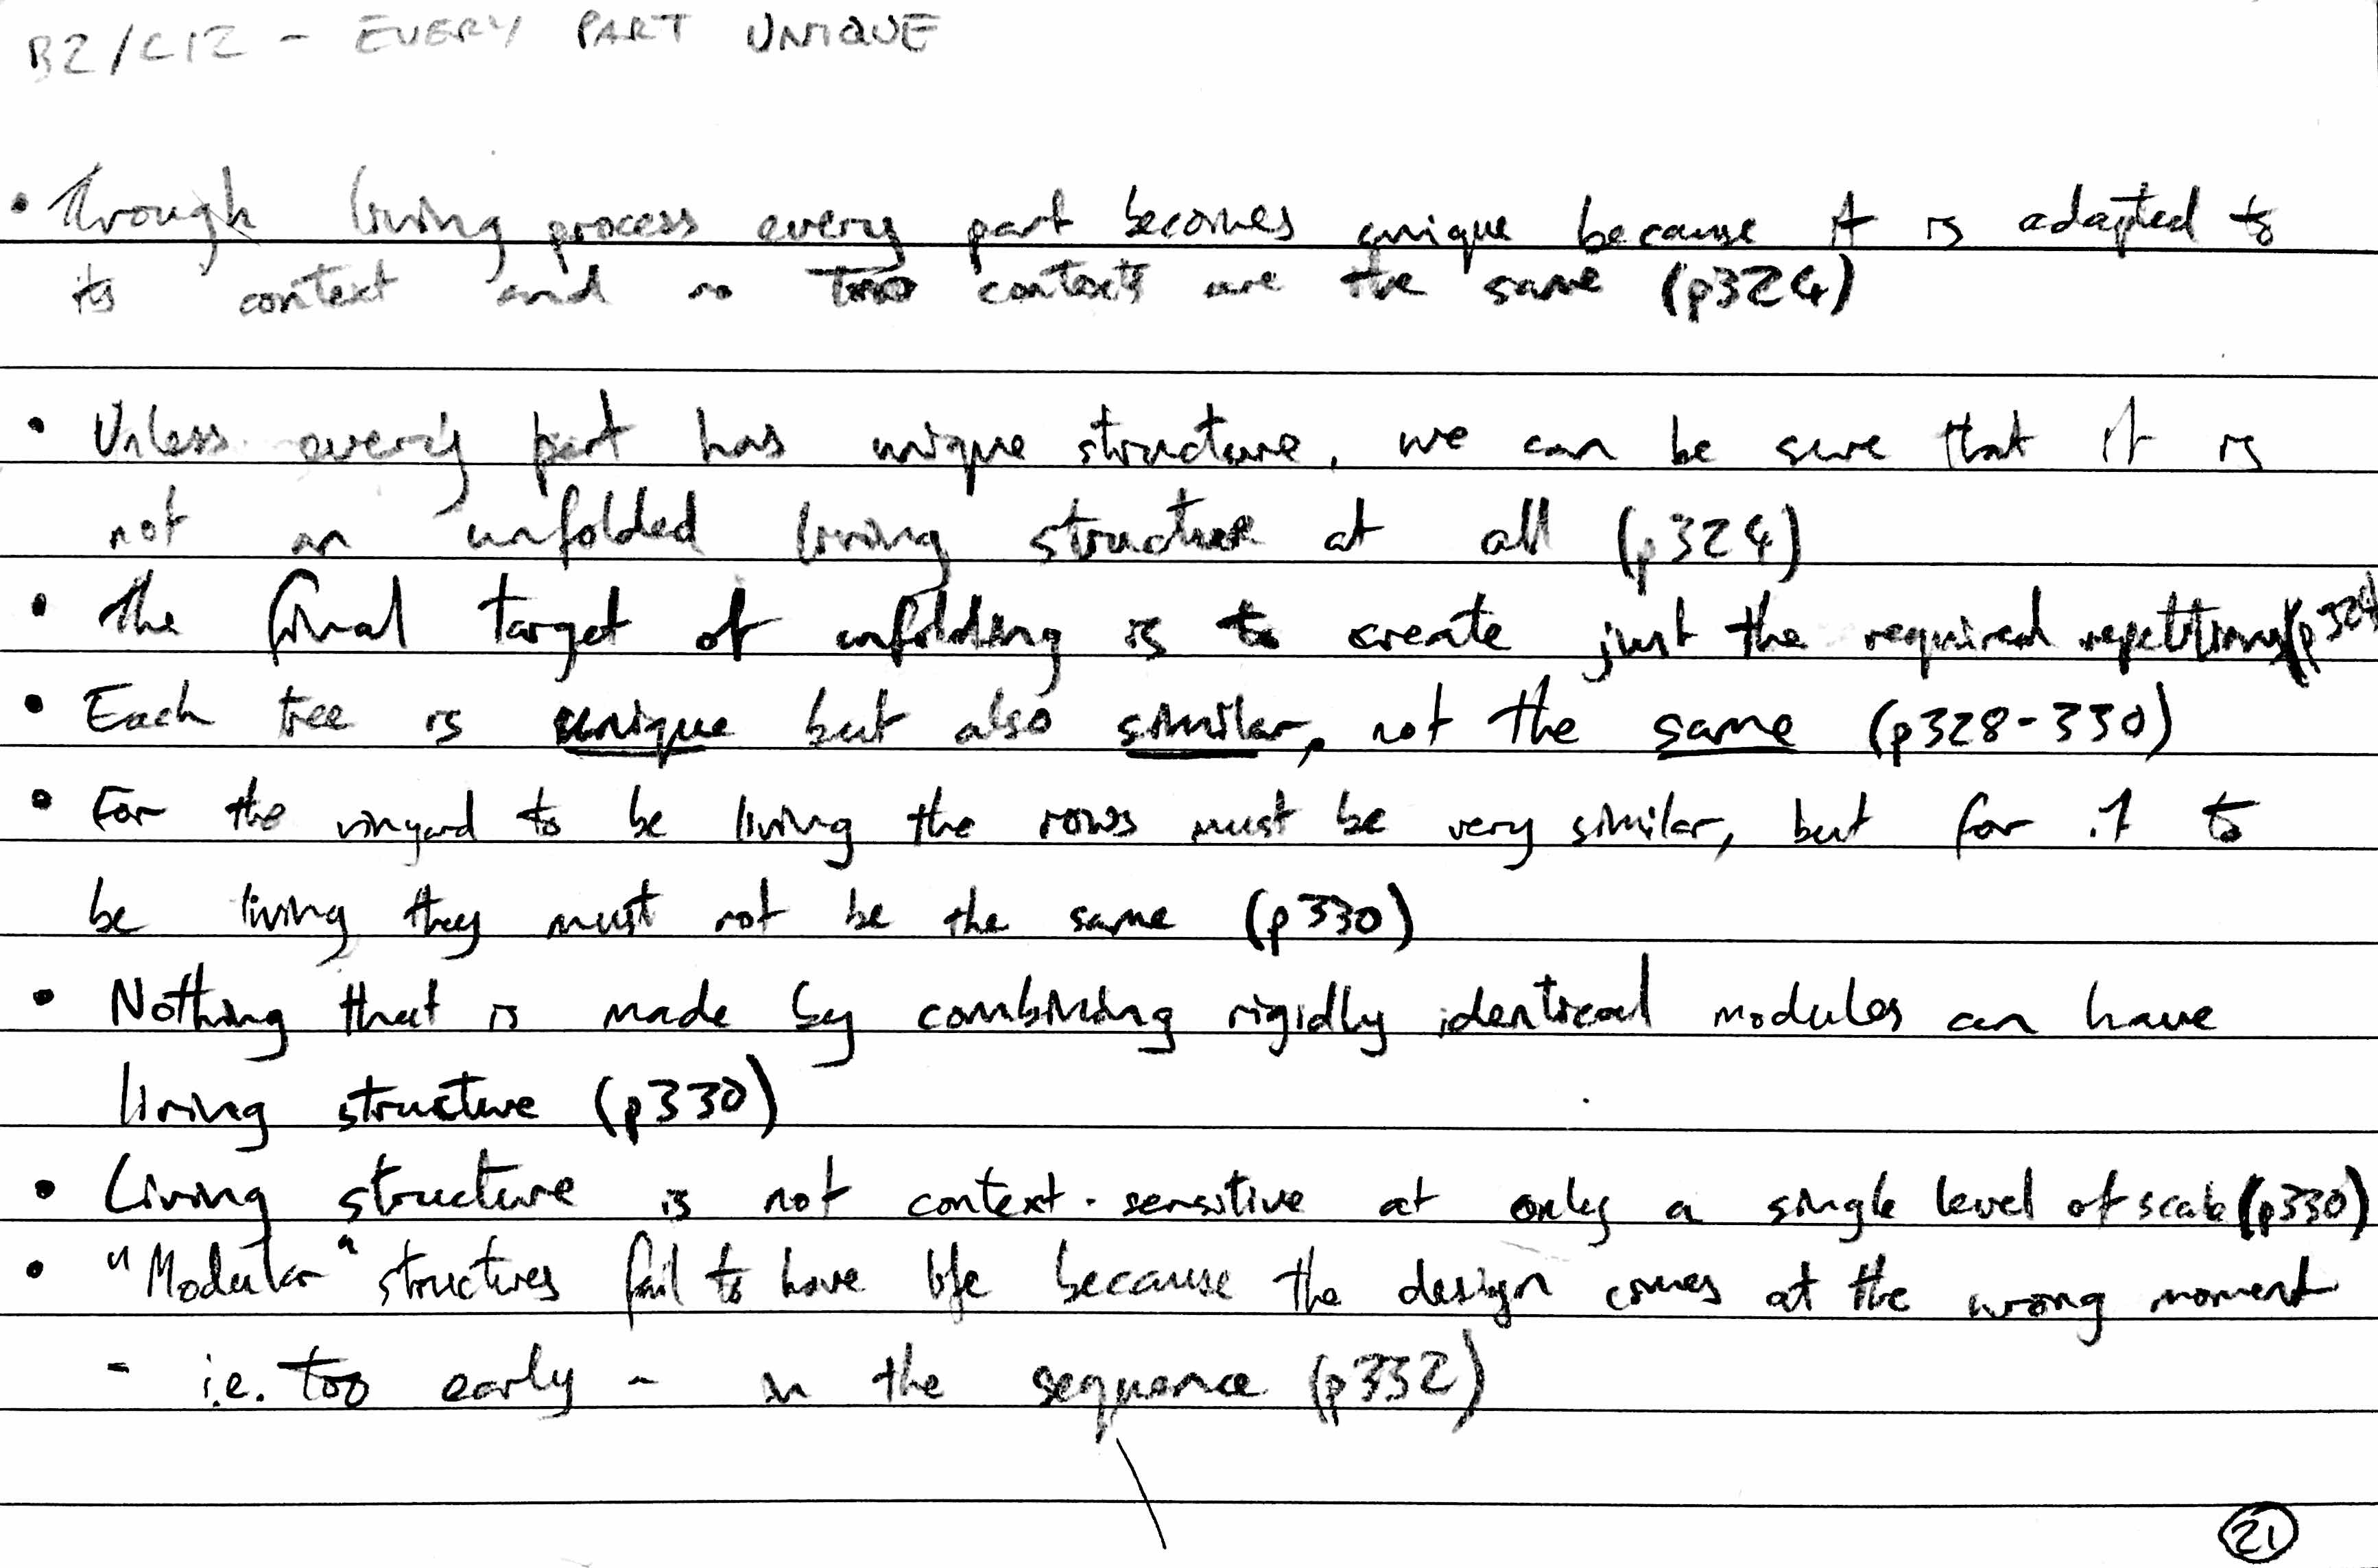 B2/C12 - EVERY PART UNIQUE
• Through living process every part becomes unique because it is adapted to
its context and no two contexts are the same (p324)
• Unless every part has unique structure, we can be sure that it is
not an unfolded living structure at all (p324)
• The final target of unfolding is to create just the required repetitions (p324)
• Each tree is unique but also similar, not the same (p328-330)
• For the vinyard to be living the rows must be very similar, but for it to
be living they must not be the same (p330)
• Nothing that is made by combining rigidly identical modules can have
living structure (p330)
• Living structure is not context-sensitive at only a single level of scale (p330)
• "Modular" structures fail to have life because the design comes at the wrong moment
- i.e. too early - in the sequence (p332)
21